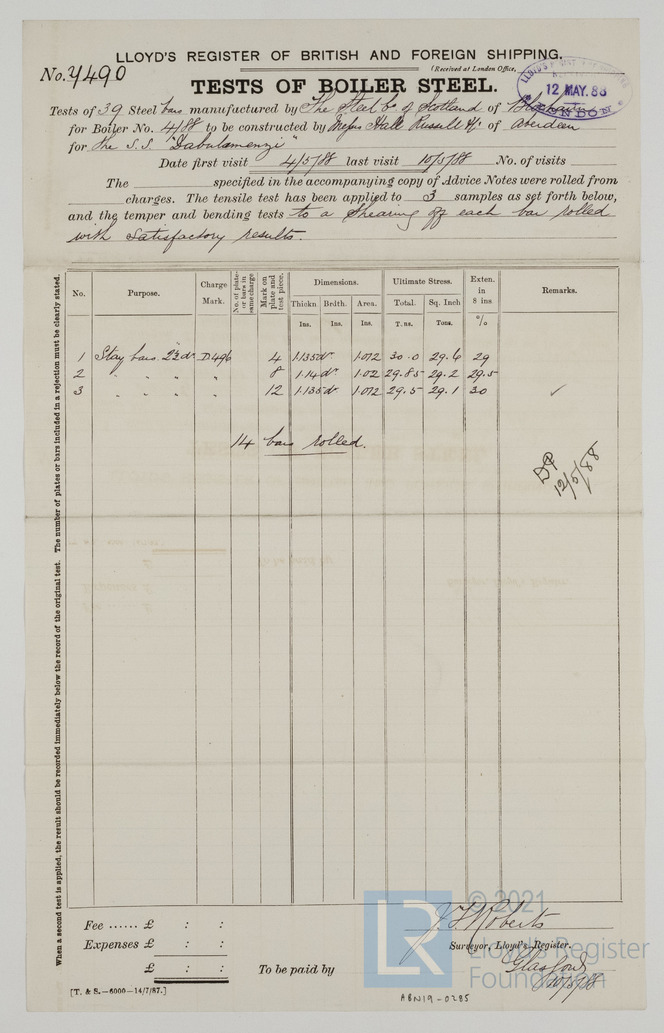 LLOYD'S REGISTER OF BRITISH AND FOREIGN SHIPPING.
No. 4490
(Received at London Office,
12 MAY. 88
LONDON
TESTS OF BOILER STEEL.
Tests of 39 Steel bars manufactured by The Steel Co of Scotland of
for Boiler No. 4/88 to be constructed by Messrs Hall Russell & Co of Aberdeen
for The S.S. "Dabulamenzi"
Date first visit 4/5/88 last visit 10/5/88 No. of visits
The specified in the accompanying copy of Advice Notes were rolled from
charges. The tensile test has been applied to 3 samples as set forth below,
and the temper and bending tests to a Shearing off each bar rolled
with satisfactory results.
When a second test is applied, the result should be recorded immediately below the record of the original test. The number of plates or bars included in a rejection must be clearly stated.
No. Purpose. Charge Mark. No. of plates or bars in same charge Mark on plate and test piece. Dimensions. Ultimate Stress. Exten. in 8 ins Remarks.
Thickn Brdth. Area. Total. Sq. Inch
Ins. Ins. Ins. Tons. Tons. %
1 Stay bars 2½ dr D496 4 1.135 dr 1.012 30.0 29.6 29
2 " " " " 8 1.14 dr 1.02 29.85 29.2 29.5
3 " " " " 12 1.135 dr 1.012 29.5 29.1 30 ✓
14 bars rolled.
12/5/88
Fee ...... £ : :
Expenses £ : :
£ : :
To be paid by
J. T. Roberts
Surveyor, Lloyd's Register.
Glasgow
10/5/88
[T. & S.—6000—14/7/87.]
ABN19-0285
LR
© 2021
Lloyd's Register
Foundation